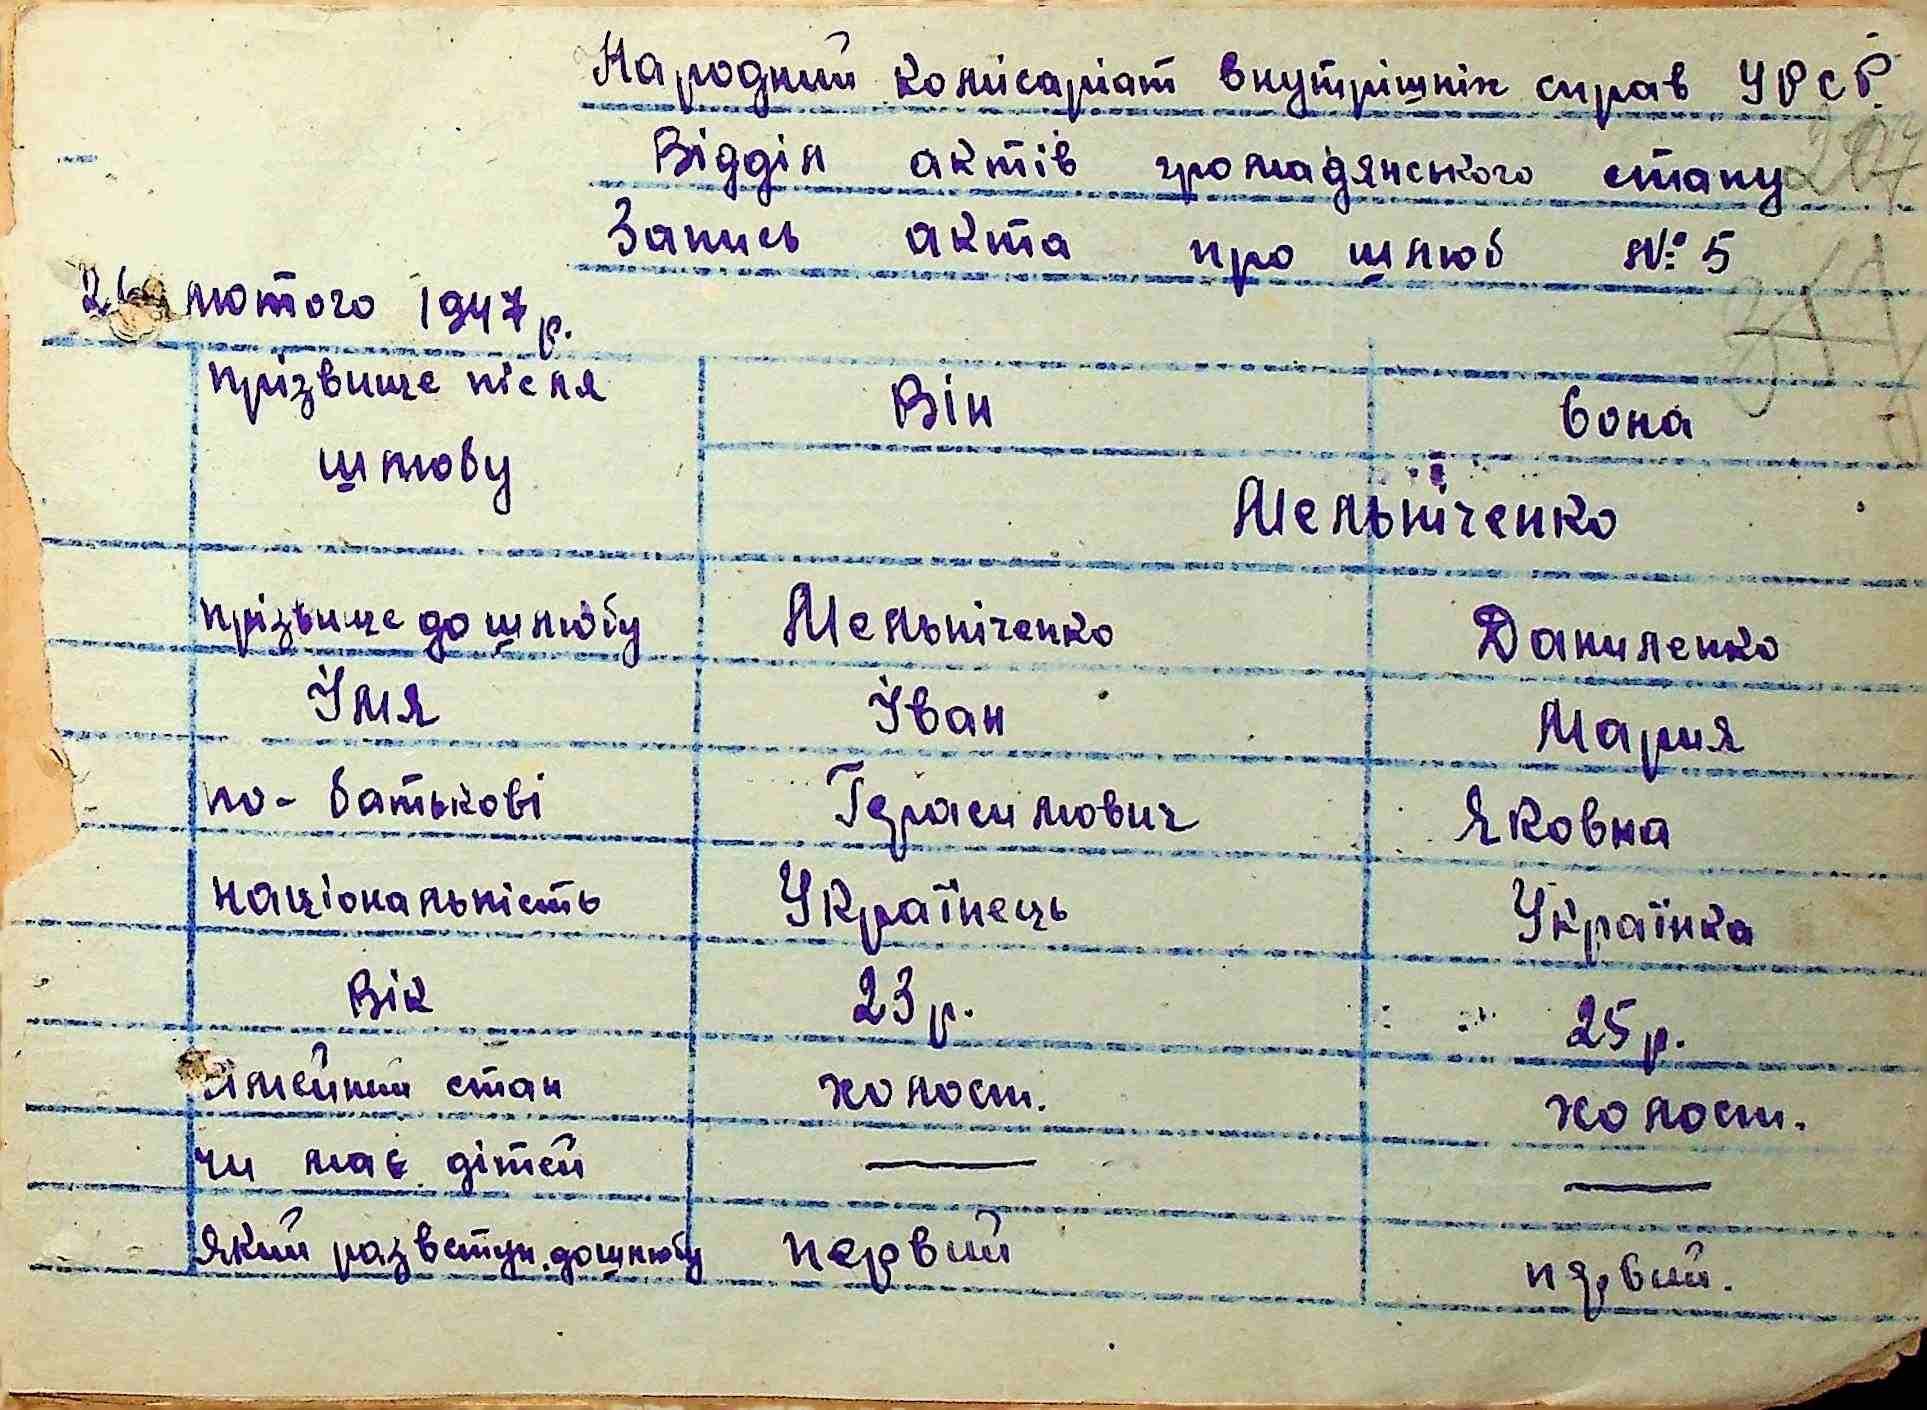 Народний комісаріат внутрішніх справ УРСР.
Відділ актів громадянського стану
Запись акта про шлюб № 5
лютого 1947 р.
прізвище після шлюбу Він вона
Мельніченко
прізвище до шлюбу Мельніченко Даниленко
Імя Іван Мария
по-батькові Герасимович Яковна
національність Українець Українка
Вік 23 р. 25 р.
стан холост. холост.
чи має дітей — —
Який раз вступ. до шлюбу первий первий.